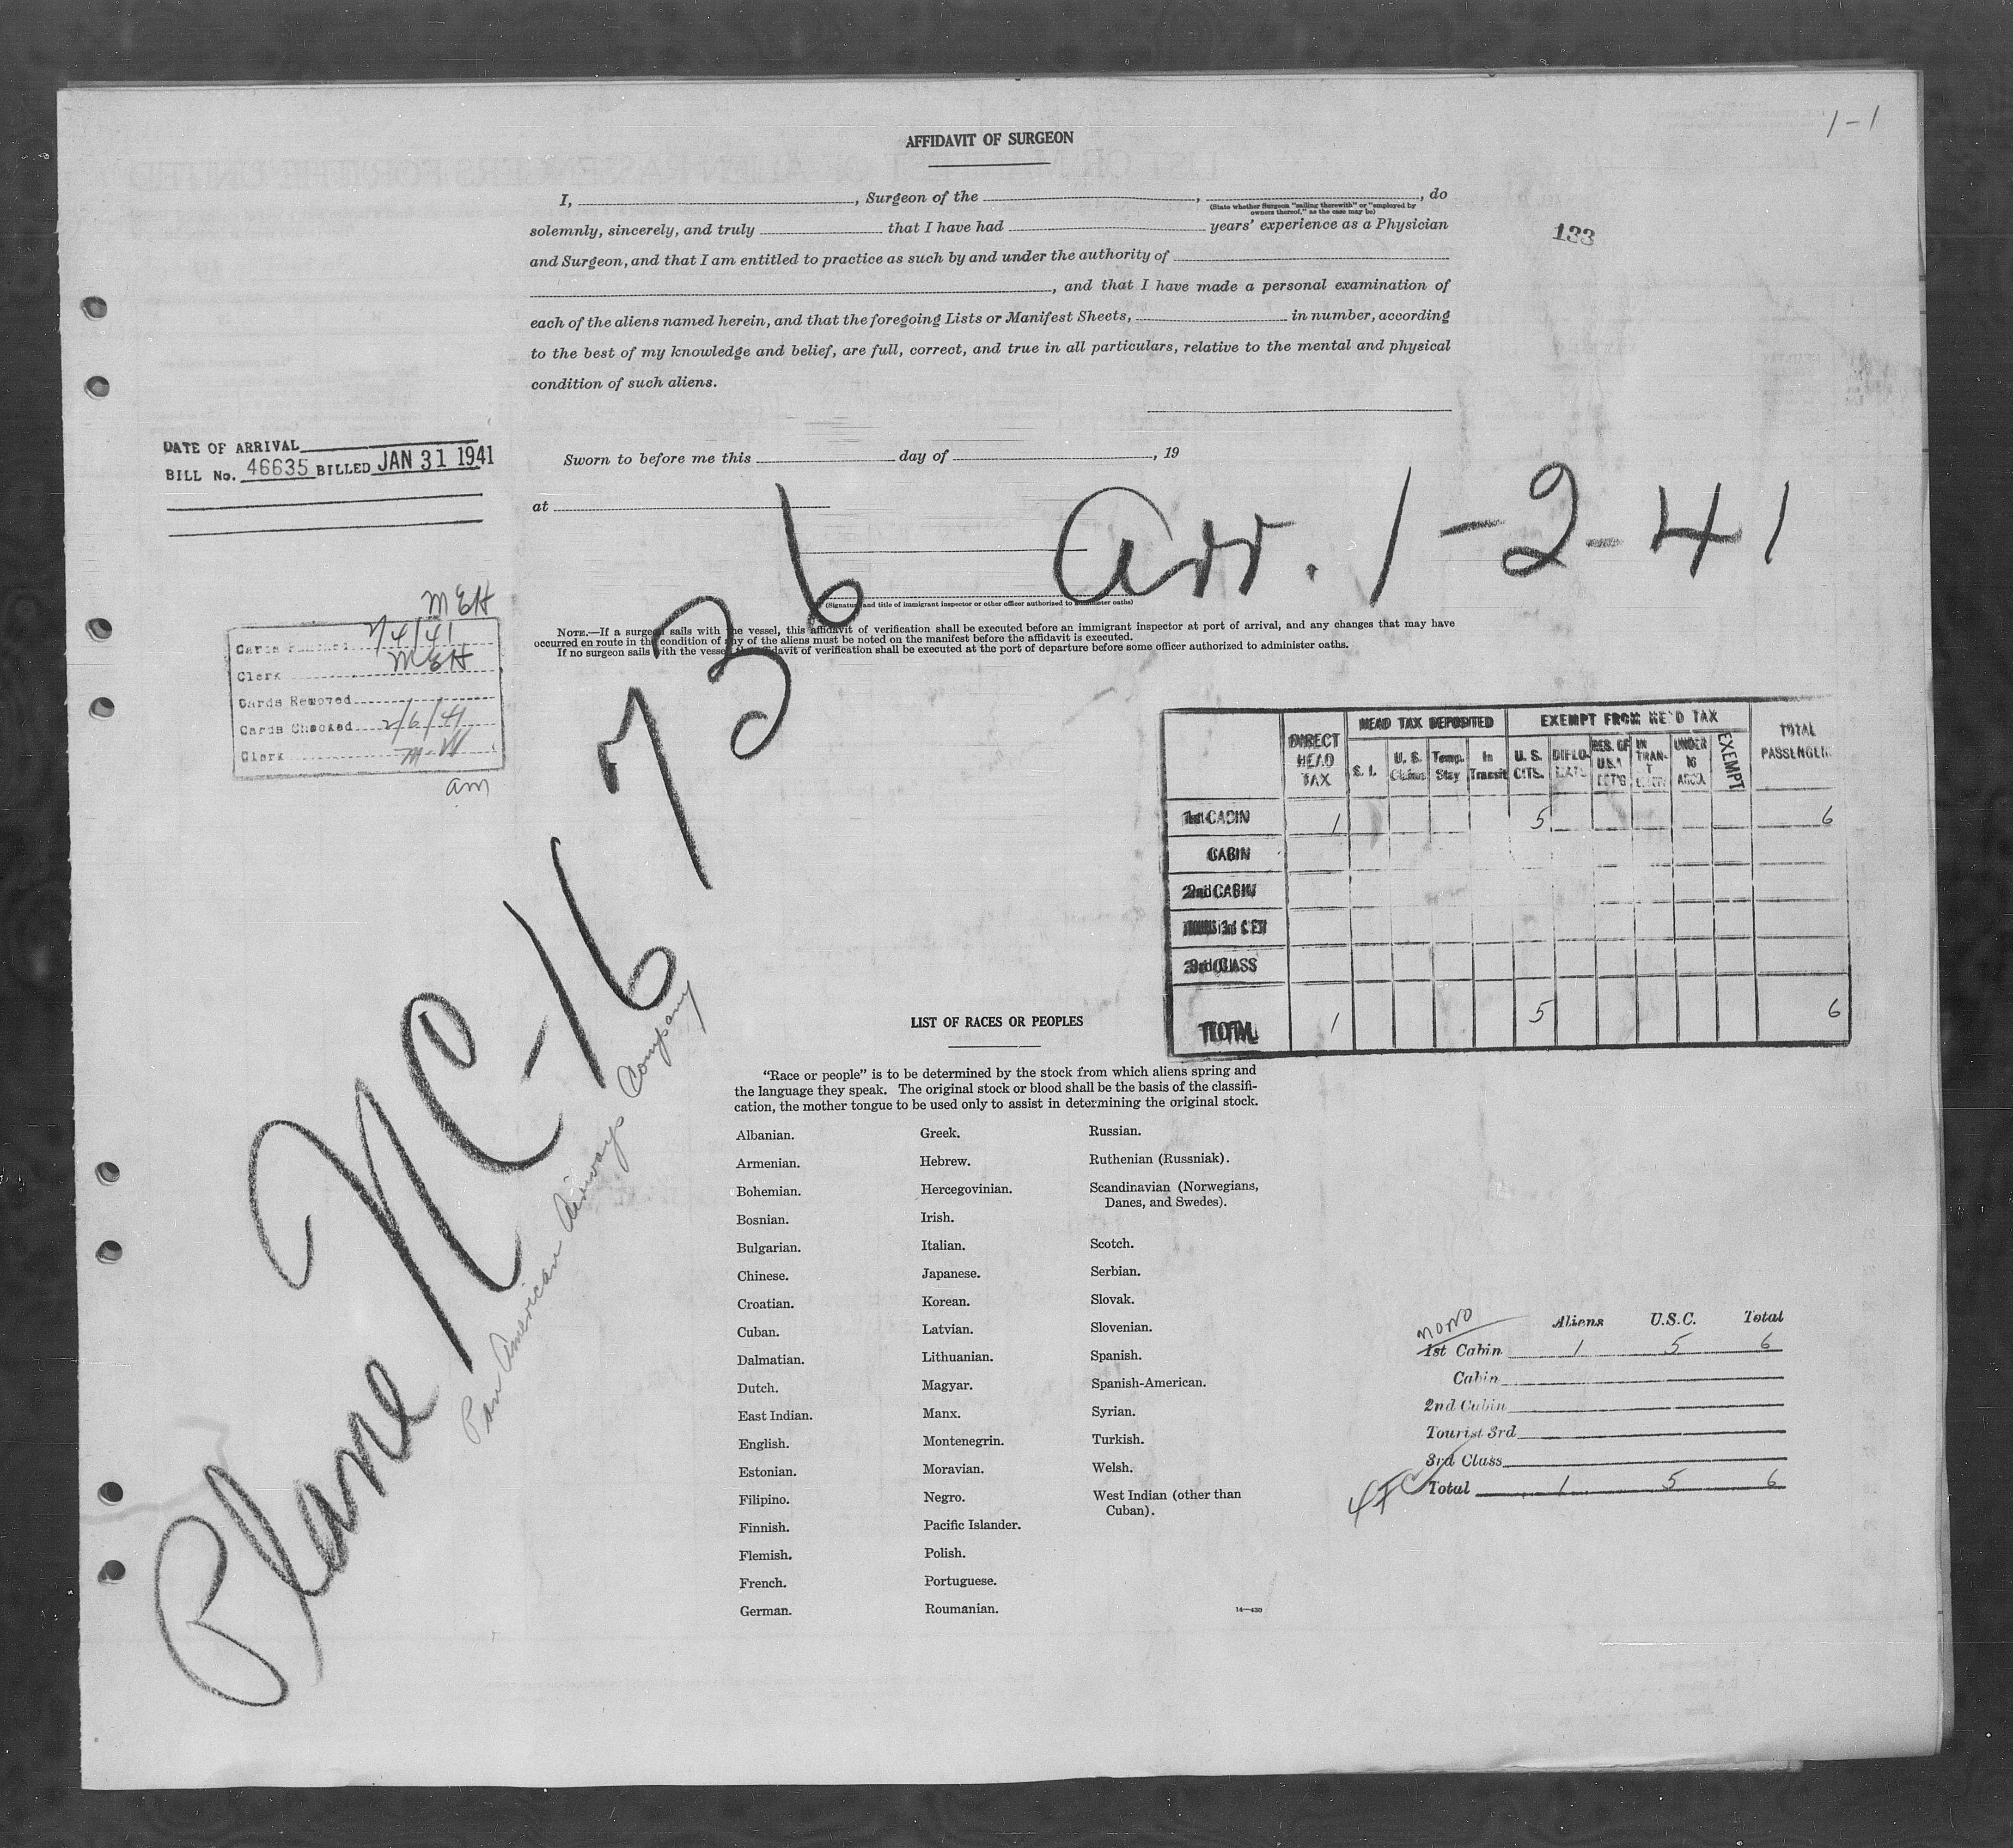 1-1
AFFIDAVIT OF SURGEON
I, , Surgeon of the , , do
(State whether Surgeon "sailing therewith" or "employed by
owners thereof," as the case may be)
solemnly, sincerely, and truly that I have had years' experience as a Physician
133
and Surgeon, and that I am entitled to practice as such by and under the authority of
, and that I have made a personal examination of
each of the aliens named herein, and that the foregoing Lists or Manifest Sheets, in number, according
to the best of my knowledge and belief, are full, correct, and true in all particulars, relative to the mental and physical
condition of such aliens.
DATE OF ARRIVAL
BILL No. 46635 BILLED JAN 31 1941
Sworn to before me this day of , 19
at
Arr. 1-2-41
(Signature and title of immigrant inspector or other officer authorized to administer oaths)
NOTE.—If a surgeon sails with the vessel, this affidavit of verification shall be executed before an immigrant inspector at port of arrival, and any changes that may have
occurred en route in the condition of any of the aliens must be noted on the manifest before the affidavit is executed.
If no surgeon sails with the vessel, the affidavit of verification shall be executed at the port of departure before some officer authorized to administer oaths.
MEH
Cards 2/4/41
Clerk MEH
Cards Removed
Cards Checked 2/6/41
Clerk M-W
am
DIRECT HEAD TAX
HEAD TAX DEPOSITED
S. I.
U. S. Claims
Temp. Stay
In Transit
EXEMPT FROM HEAD TAX
U. S. CITS.
DIPLO-MATS
RES. OF U.S.A
IN TRAN-T
UNDER 16 ACCO.
EXEMPT
TOTAL PASSENGERS
1st CABIN 1 5 6
CABIN
2nd CABIN
3rd CLASS
TOTAL 1 5 6
Plane NC-16736
Pan American Airways Company
LIST OF RACES OR PEOPLES
"Race or people" is to be determined by the stock from which aliens spring and
the language they speak. The original stock or blood shall be the basis of the classifi-
cation, the mother tongue to be used only to assist in determining the original stock.
Albanian.
Armenian.
Bohemian.
Bosnian.
Bulgarian.
Chinese.
Croatian.
Cuban.
Dalmatian.
Dutch.
East Indian.
English.
Estonian.
Filipino.
Finnish.
Flemish.
French.
German.
Greek.
Hebrew.
Hercegovinian.
Irish.
Italian.
Japanese.
Korean.
Latvian.
Lithuanian.
Magyar.
Manx.
Montenegrin.
Moravian.
Negro.
Pacific Islander.
Polish.
Portuguese.
Roumanian.
Russian.
Ruthenian (Russniak).
Scandinavian (Norwegians,
Danes, and Swedes).
Scotch.
Serbian.
Slovak.
Slovenian.
Spanish.
Spanish-American.
Syrian.
Turkish.
Welsh.
West Indian (other than
Cuban).
14—430
Aliens U.S.C. Total
1st Cabin 1 5 6
Cabin
2nd Cabin
Tourist 3rd
3rd Class
Total 1 5 6